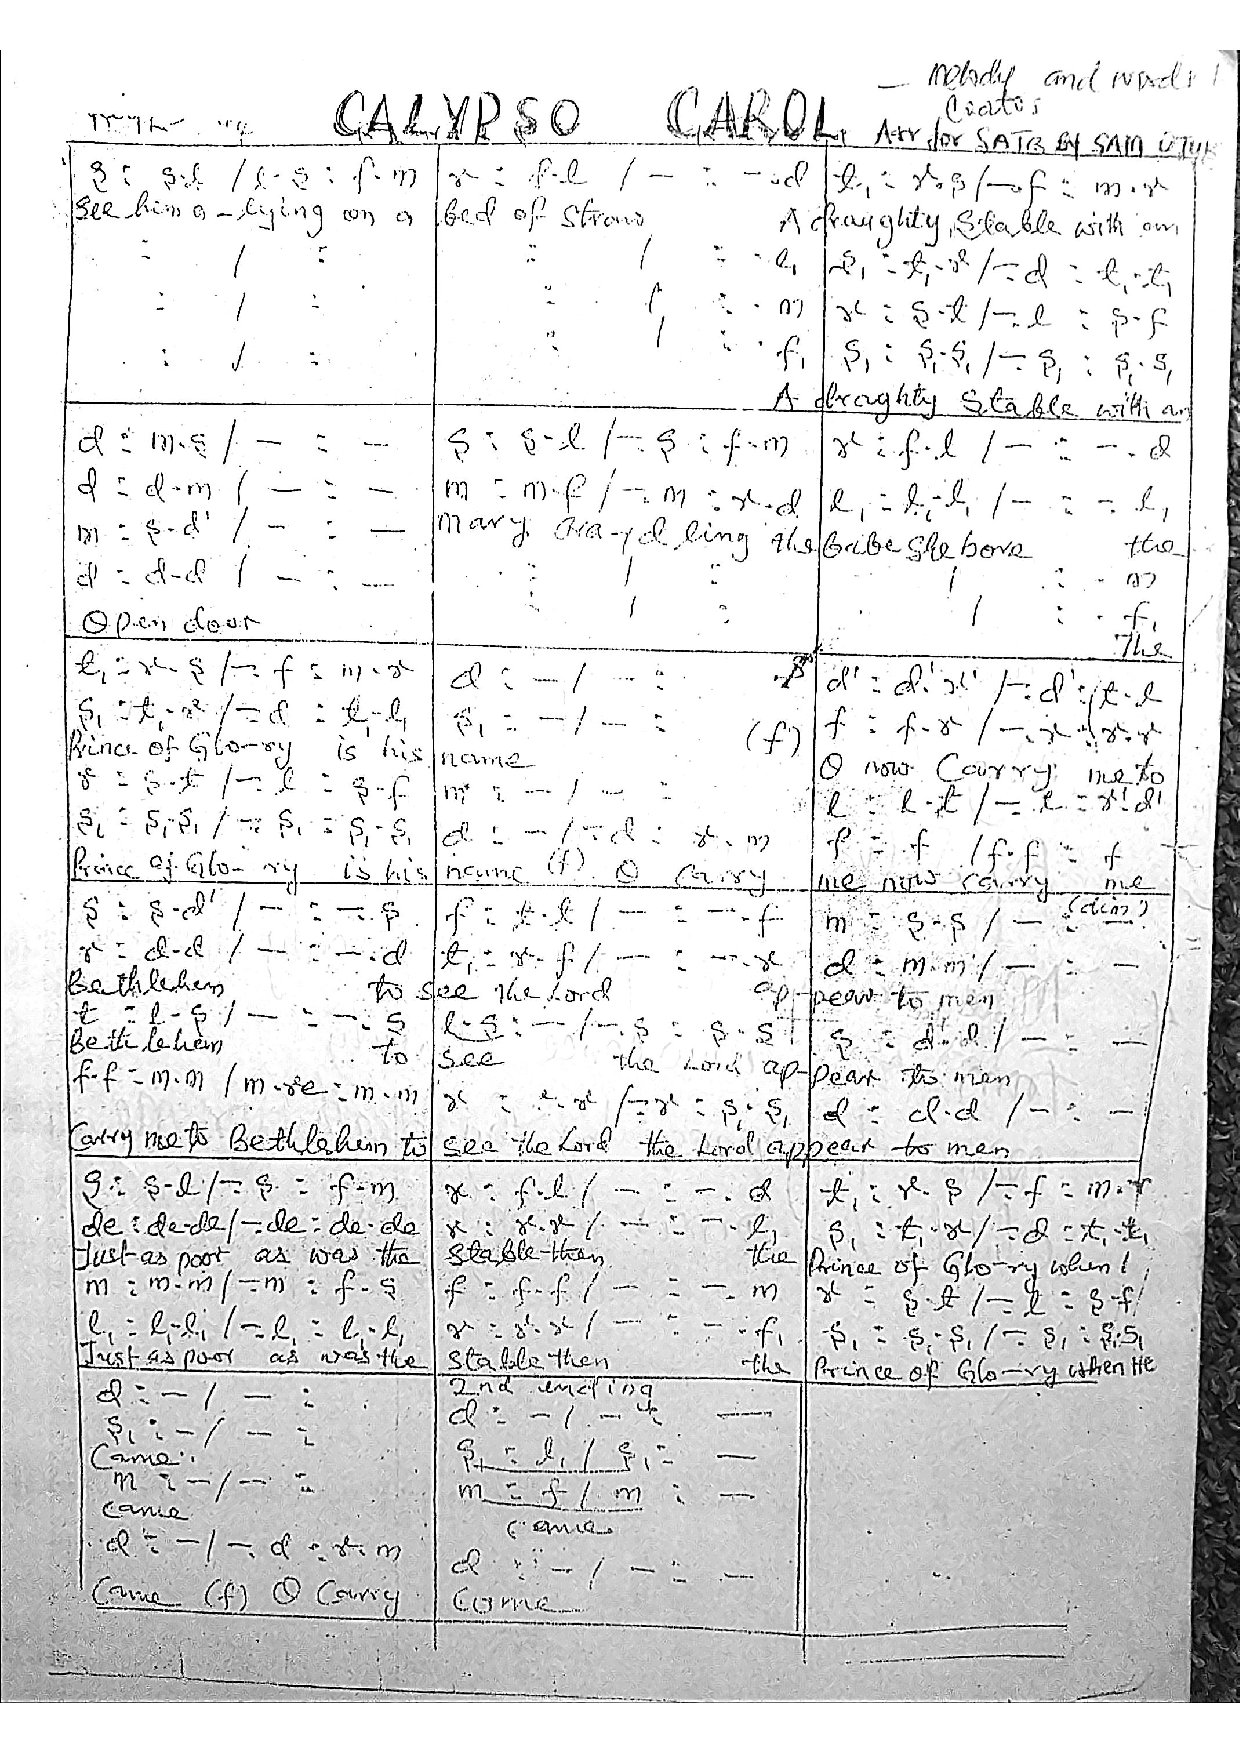 melody and words
CALYPSO CAROL
Arr for SATB By SAM
s : s.l / l.s : f.m
r : f.l / — : —.d
t₁ : r.s /—.f : m.r
See him a-lying on a
bed of straw
A draughty Stable with an
: / :
: / : . l₁
s₁ : t₁.r /—.d : t₁.t₁
: / :
: / : . m
r : s.t /—.l : s.f
: / :
: / : . f₁
s₁ : s₁.s₁ /—.s₁ : s₁.s₁
A draughty Stable with an
d : m.s / — : —
d : d.m / — : —
m : s.d' / — : —
d : d.d / — : —
Open door
s : s.l /—.s : f.m
m : m.f /—.m : r.d
Mary cra-dling the
: / :
: / :
r : f.l / — : —.d
l₁ : l₁.l₁ / — : —.l₁
babe she bore the
/ : . m
/ : . f₁
The
t₁ : r.s /—.f : m.r
s₁ : t₁.r /—.d : t₁.t₁
Prince of Glo-ry is his
r : s.t /—.l : s.f
s₁ : s₁.s₁ /—.s₁ : s₁.s₁
Prince of Glo-ry is his
d : — / — : .s
s₁ : — / — : (f)
name
m : — / — :
d : — /—.d : r.m
name (f) O Carry
d' : d'.r' /—.d' : t.l
f : f.r /—.r : r.r
O now Carry me to
l : l.t /—.l : r'.d'
f : f / f.f : f
me now carry me
s : s.d' / — : —.s
r : d.d / — : —.d
Bethlehem to
t : l.s / — : —.s
Bethlehem to
f.f : m.m / m.re : m.m
Carry me to Bethlehem to
f : t.l / — : —.f
t₁ : r.f / — : —.r
see the Lord ap-
l.s : — /—.s : s.s
see the Lord ap-
see the Lord the Lord
m : s.s / — : — (dim)
d : m.m / — : —
pear to men
s : d'.d' / — : —
pear to men
d : d.d / — : —
appear to men
s : s.l /—.s : f.m
de : de.de /—.de : de.de
Just as poor as was the
m : m.m /—.m : f.s
l₁ : l₁.l₁ /—.l₁ : l₁.l₁
Just as poor as was the
r : f.l / — : —.d
r : r.r / — : —.l₁
stable then the
f : f.f / — : —.m
r : r.r / — : —.f₁
stable then the
t₁ : r.s /—.f : m.r
s₁ : t₁.r /—.d : t₁.t₁
Prince of Glo-ry when
r : s.t /—.l : s.f
s₁ : s₁.s₁ /—.s₁ : s₁.s₁
Prince of Glo-ry when He
d : — / — :
s₁ : — / — :
Came
m : — / — :
came
d : — /—.d : r.m
Came (f) O Carry
2nd ending
d : — / — : —
s₁ : l₁ / s₁ : —
m : f / m : —
came
d : — / — : —
Came